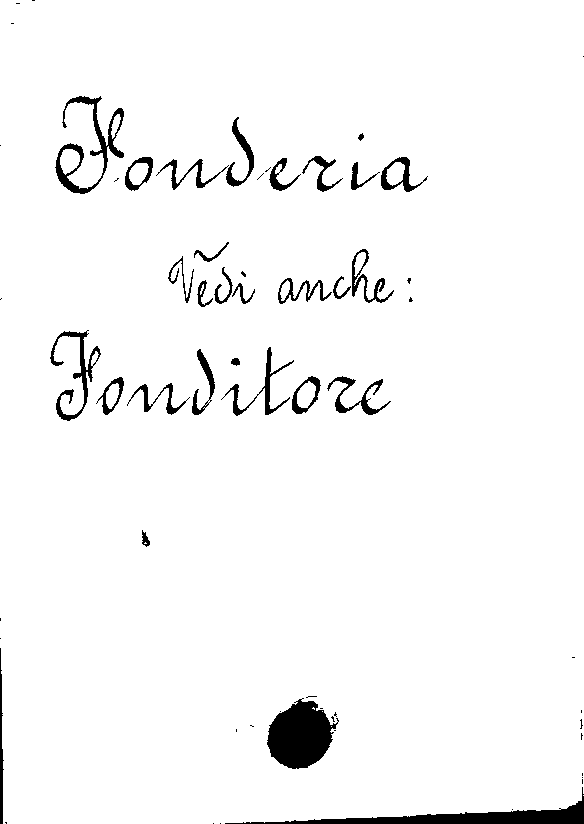 Fonderia
Vedi anche:
Fonditore